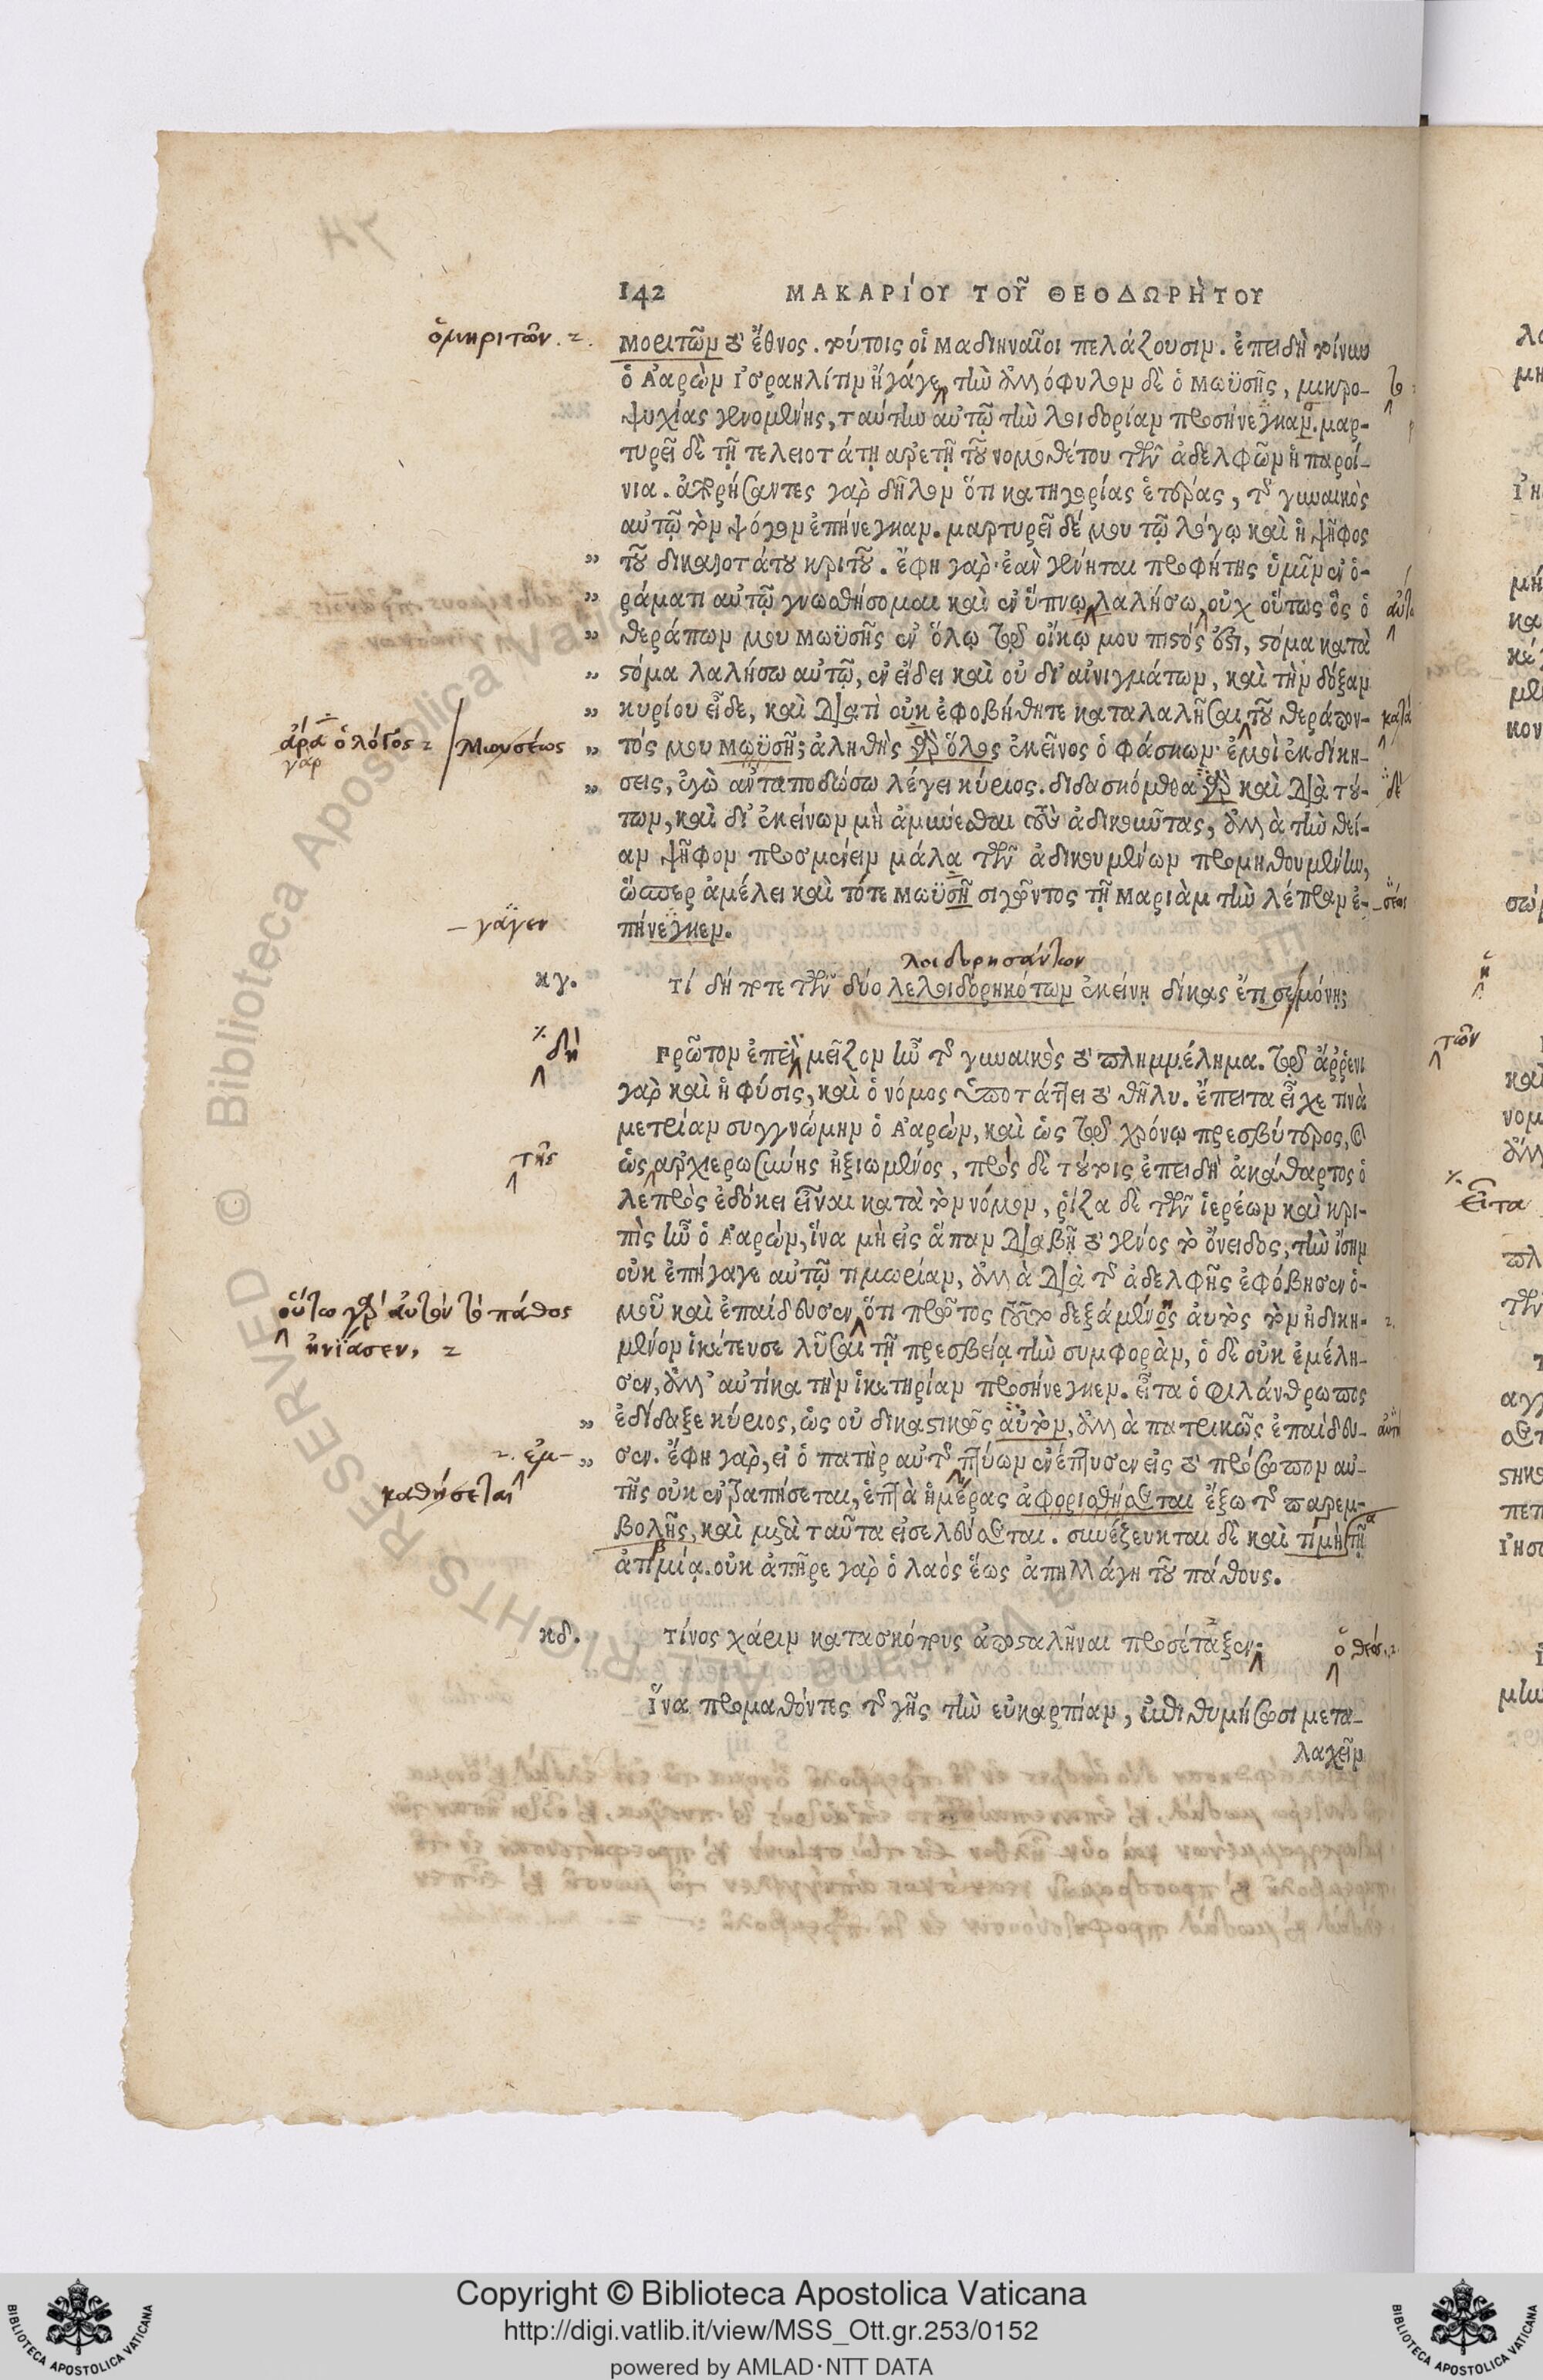 142 ΜΑΚΑΡΙΟΥ ΤΟΥ͂ ΘΕΟΔΩΡΗΤΟΥ
ὁμηριτῶν.
μοριτῶν τὸ ἔθνος. τούτοις οἱ Μαδιηναῖοι πελάζουσιν. ἐπειδὴ τοίνυν
ὁ Ἀαρὼν Ἰσραηλίτιν ἠγάγε, τὴν ἀλλόφυλον δὲ ὁ Μωϋσῆς, μικρο-
ψυχίας γενομένης, ταύτην αὐτῷ τὴν λοιδορίαν προσήνεγκαν. μαρ-
τυρεῖ δὲ τῇ τελειοτάτῃ ἀρετῇ τοῦ νομοθέτου τῶν ἀδελφῶν ἡ παροί-
νια. ἀπορήσαντες γὰρ δῆλον ὅτι κατηγορίας ἑτέρας, τῆς γυναικὸς
αὐτῷ τὸν ψόγον ἐπήνεγκαν. μαρτυρεῖ δέ μου τῷ λόγῳ καὶ ἡ ψῆφος
„ τοῦ δικαιοτάτου κριτοῦ. ἔφη γάρ· ἐὰν γένηται προφήτης ὑμῖν ἐν ὁ-
„ ράματι αὐτῷ γνωσθήσομαι καὶ ἐν ὕπνῳ λαλήσω, οὐχ οὕτως ὃς ὁ
„ θεράπων μου Μωϋσῆς ἐν ὅλῳ τῷ οἴκῳ μου πιστός ἐστι, στόμα κατὰ
„ στόμα λαλήσω αὐτῷ, ἐν εἴδει καὶ οὐ δι' αἰνιγμάτων, καὶ τὴν δόξαν
„ κυρίου εἶδε, καὶ διατὶ οὐκ ἐφοβήθητε καταλαλῆσαι τοῦ θεράπον- κατὰ
ἄρα ὁ λόγος Μωυσέως
γαρ
„ τός μου Μωϋσῆ; ἀληθὴς γὰρ ὅλος ἐκεῖνος ὁ φάσκων· ἐμοὶ ἐκδίκη-
„ σεις, ἐγὼ ἀνταποδώσω λέγει κύριος. διδασκόμεθα γὰρ καὶ διὰ τού- δὲ
των, καὶ δι' ἐκείνων μὴ ἀμύνεσθαι τοὺς ἀδικοῦντας, ἀλλὰ τὴν θεί-
αν ψῆφον προσμένειν μάλα τῶν ἀδικουμένων προμηθουμένην,
ὥσπερ ἀμέλει καὶ τότε Μωϋσῆ σιγῶντος τῇ Μαριὰμ τὴν λέπραν ἐ-
γαγεν
πήνεγκεν.
λοιδορησάντων
κγ. Τί δή ποτε τῶν δύο λελοιδορηκότων ἐκείνη δίκας ἔτισε μόνη;
δὴ
Πρῶτον ἐπεὶ μεῖζον ἦν τῆς γυναικὸς τὸ πλημμέλημα. τῷ ἄῤῥενι
γὰρ καὶ ἡ φύσις, καὶ ὁ νόμος ὑποτάττει τὸ θῆλυ. ἔπειτα εἶχε τινὰ
μετρίαν συγγνώμην ὁ Ἀαρών, καὶ ὡς τῷ χρόνῳ πρεσβύτερος, καὶ
τῆς
ὡς ἀρχιερωσύνης ἠξιωμένος, πρὸς δὲ τούτοις ἐπειδὴ ἀκάθαρτος ὁ
λεπρὸς ἐδόκει εἶναι κατὰ τὸν νόμον, ῥίζα δὲ τῶν ἱερέων καὶ κρι-
πὶς ἦν ὁ Ἀαρών, ἵνα μὴ εἰς ἅπαν διαβῇ τὸ γένος τὸ ὄνειδος, τὴν ἴσην
οὐκ ἐπήγαγε αὐτῷ τιμωρίαν, ἀλλὰ διὰ τῆς ἀδελφῆς ἐφόβησεν ὁ-
οὕτω γὰρ αὐτὸν τὸ πάθος
ἠνίασεν,
μοῦ καὶ ἐπαίδευσεν, ὅτι πρῶτος τοῦτο δεξάμενος αὐτὸς τὸν ἠδικη-
μένον ἱκέτευσε λῦσαι τῇ πρεσβείᾳ τὴν συμφοράν, ὁ δὲ οὐκ ἐμέλη-
σεν, ἀλλ' αὐτίκα τὴν ἱκετηρίαν προσήνεγκεν. εἶτα ὁ φιλάνθρωπος
„ ἐδίδαξε κύριος, ὡς οὐ δικαστικῶς αὐτὸν, ἀλλὰ πατρικῶς ἐπαίδευ-
ἐμ-
„ σεν. ἔφη γὰρ, εἰ ὁ πατὴρ αὐτῆς πτύων ἐνέπτυσεν εἰς τὸ πρόσωπον αὐ-
καθήσεται
τῆς οὐκ ἐντραπήσεται, ἑπτὰ ἡμέρας ἀφορισθήσεται ἔξω τῆς παρεμ-
βολῆς, καὶ μετὰ ταῦτα εἰσελεύσεται. συνέζευκται δὲ καὶ τιμὴ τῇ
ἀτιμίᾳ. οὐκ ἀπῆρε γὰρ ὁ λαὸς ἕως ἀπηλλάγη τοῦ πάθους.
κδ. Τίνος χάριν κατασκόπους ἀποσταλῆναι προσέταξεν; ὁ θεός.
Ἵνα προμαθόντες τῆς γῆς τὴν εὐκαρπίαν, ἐπιθυμήσωσι μετα-
λαχεῖν
τῶν
εἶτα
Copyright © Biblioteca Apostolica Vaticana
http://digi.vatlib.it/view/MSS_Ott.gr.253/0152
powered by AMLAD·NTT DATA
BIBLIOTECA APOSTOLICA VATICANA
BIBLIOTECA APOSTOLICA VATICANA